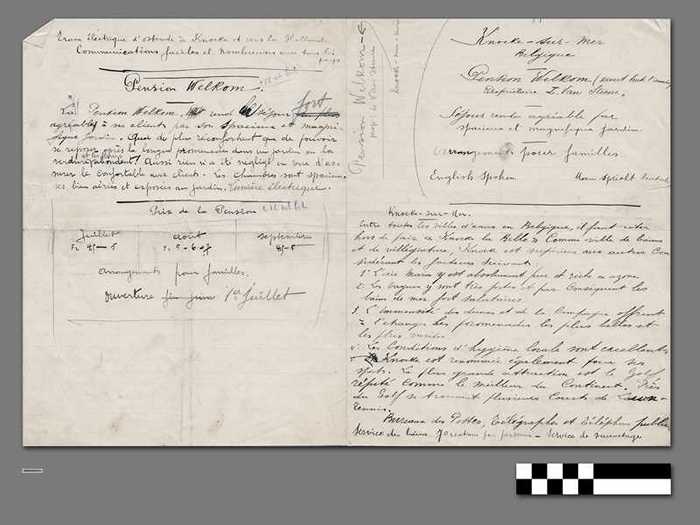 Tram électrique d'ostende à Knocke et vers la Hollande
Communications faciles et nombreuses avec tous les
pays
Pension Welkom
La Pension Welkom rend le séjour fort
agréable à ses clients par son spacieux et magni-
fique jardin. Quoi de plus réconfortant que de pouvoir
se reposer après la longue promenade dans un jardin où la
verdure abondent! Aussi rien n'a été négligé en vue d'as-
surer le confortable aux clients. Les chambres sont spacieu-
ses, bien aérées et exposées au jardin. Lumière électrique.
Prix de la Pension
Juillet août septembre
arrangements pour familles.
ouverture 1er Juillet
Pension Welkom
Knocke-sur-Mer
Belgique
Pension Welkom
Propriétaire Van
Séjour rendu agréable par
spacieux et magnifique jardin
arrangements pour familles
English Spoken Man spricht Deutsch
Knocke-sur-Mer.
Entre toutes les villes d'eaux en Belgique, il faut citer
hors de pair Knocke la Belle. Comme ville de bains
et de villégiature, Knocke est supérieur aux autres con-
sidérant les facteurs suivants
1° L'air marin y est absolument pur et riche en ozone.
2° Les vagues y sont très fortes et par conséquent les
bains de mer fort salutaires.
3. L'immensité des dunes et de la campagne offrent
à l'échange les promenades les plus belles et
les plus variées.
Les Conditions d'hygiène locale sont excellentes
Knocke est renommée également pour ses
sports. La plus grande attraction est le Golf
réputé comme le meilleur du Continent. Près
du Golf se trouvent plusieurs Courts de Lawn-
Tennis.
Bureaux des Postes, Télégraphes et Téléphone publics
Service des bains. - Service de sauvetage